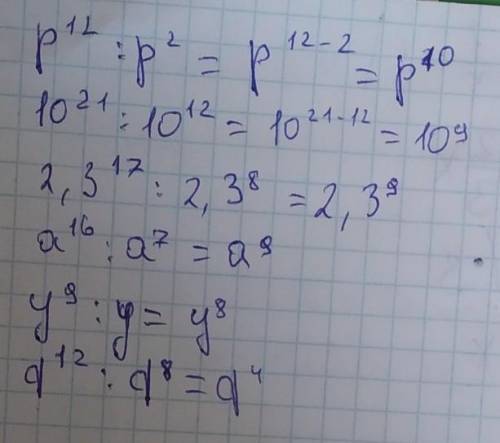 p¹² : p² = p¹²⁻² = p¹⁰
10²¹ : 10¹² = 10²¹⁻¹² = 10⁹
2,3¹⁷ : 2,3⁸ = 2,3⁹
a¹⁶ : a⁷ = a⁹
y⁹ : y = y⁸
q¹² : q⁸ = q⁴